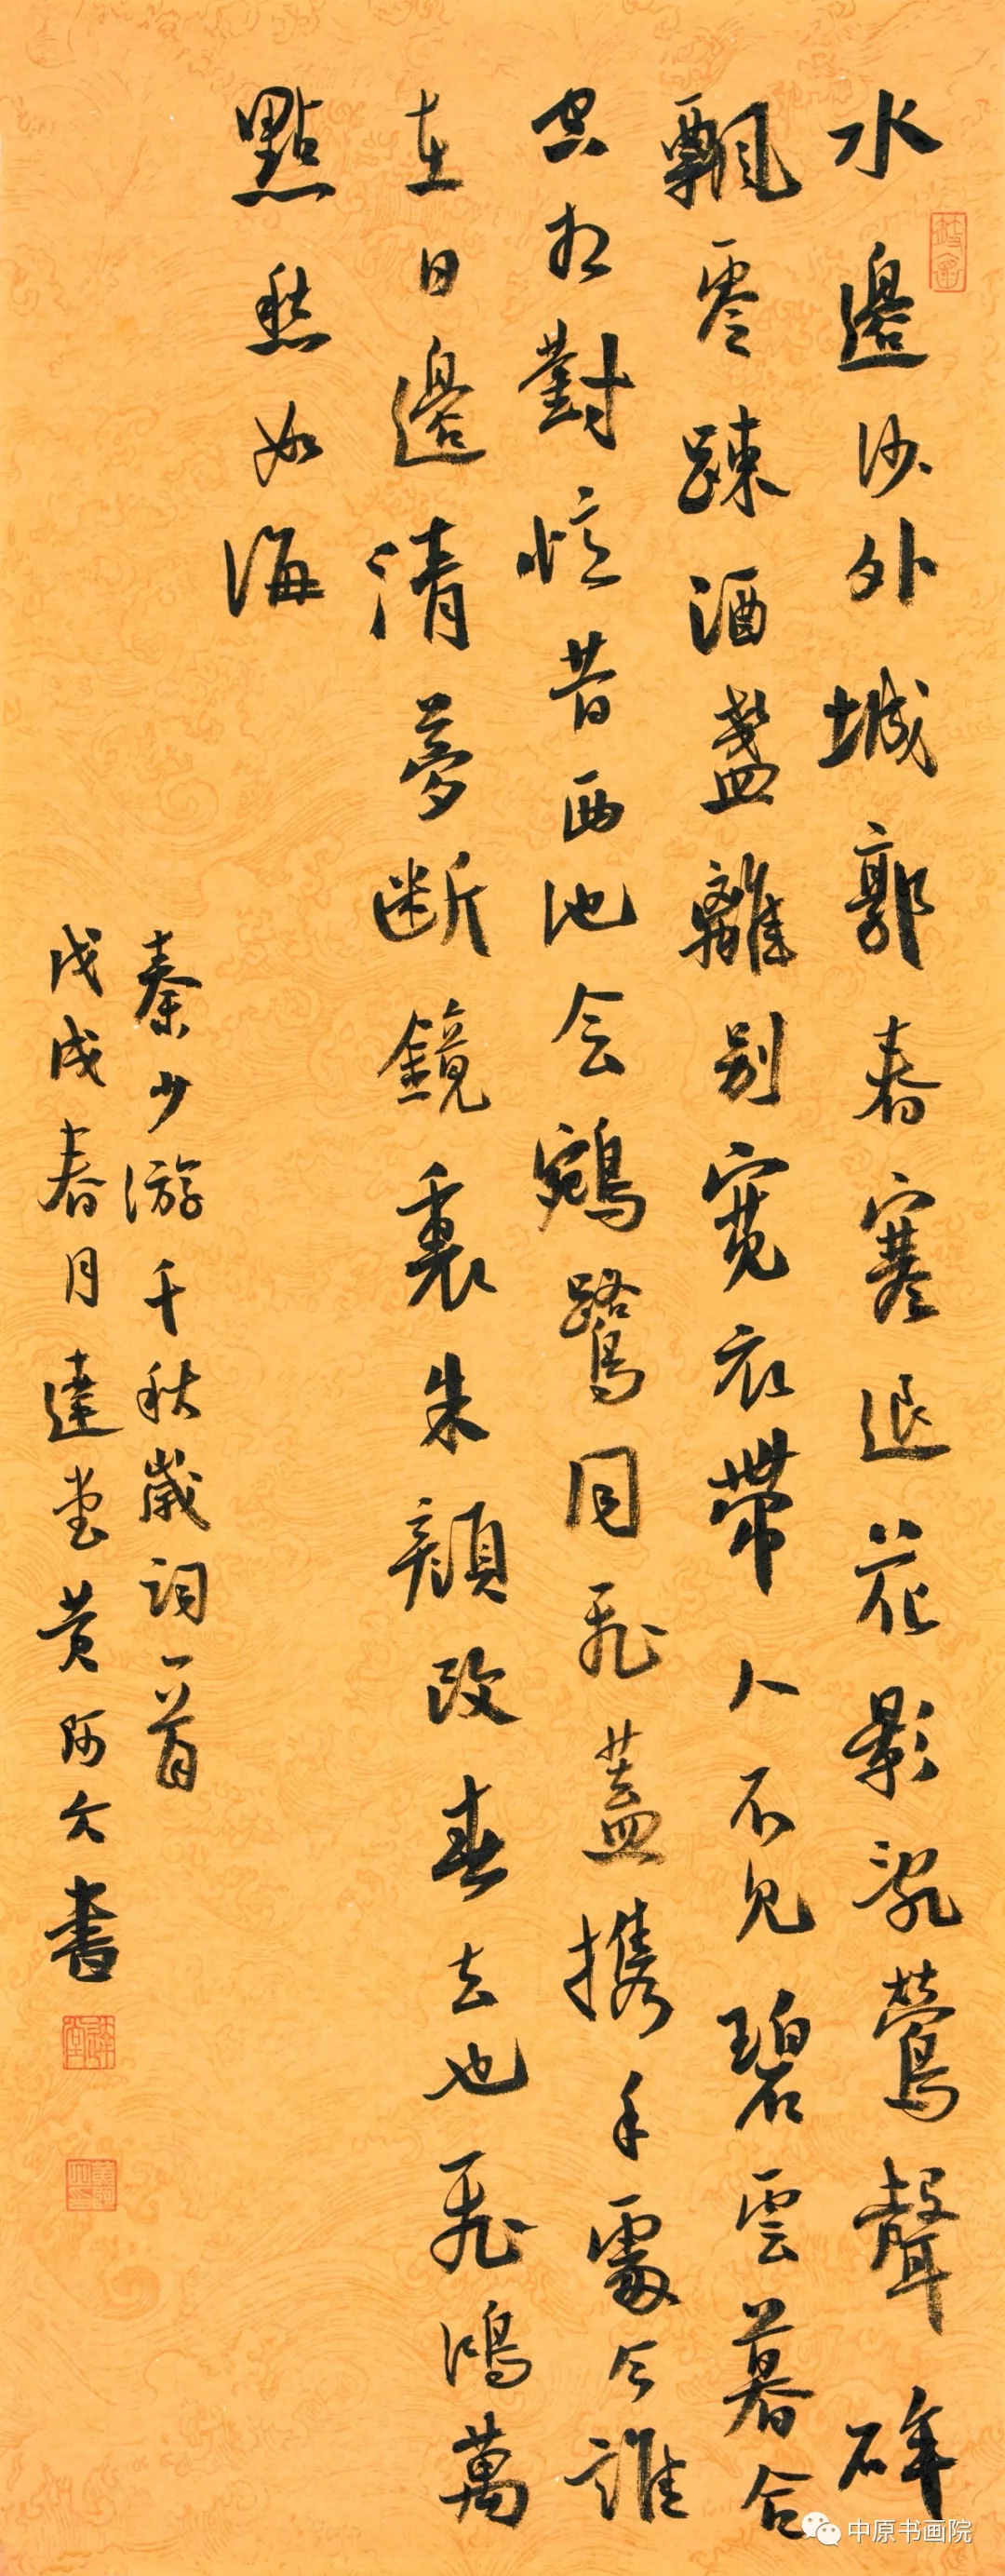 水邊沙外城郭春寒退花影亂鶯聲碎
飄零踈酒盞離別寬衣帶人不見碧雲暮合
空相對憶昔西池会鵷鷺同飛蓋攜手處今誰
在日邊清夢断鏡裏朱顔改春去也飛鴻萬
點愁如海
秦少游千秋歲詞一首
戊戌春月達堂黄阿六書
中原书画院